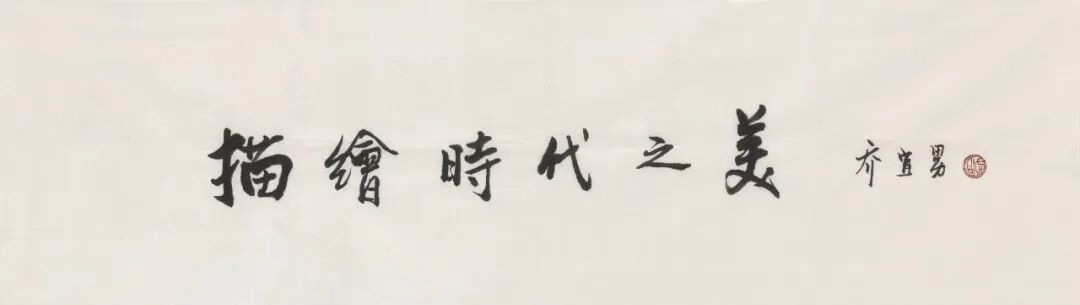 描繪時代之美 乔宜男